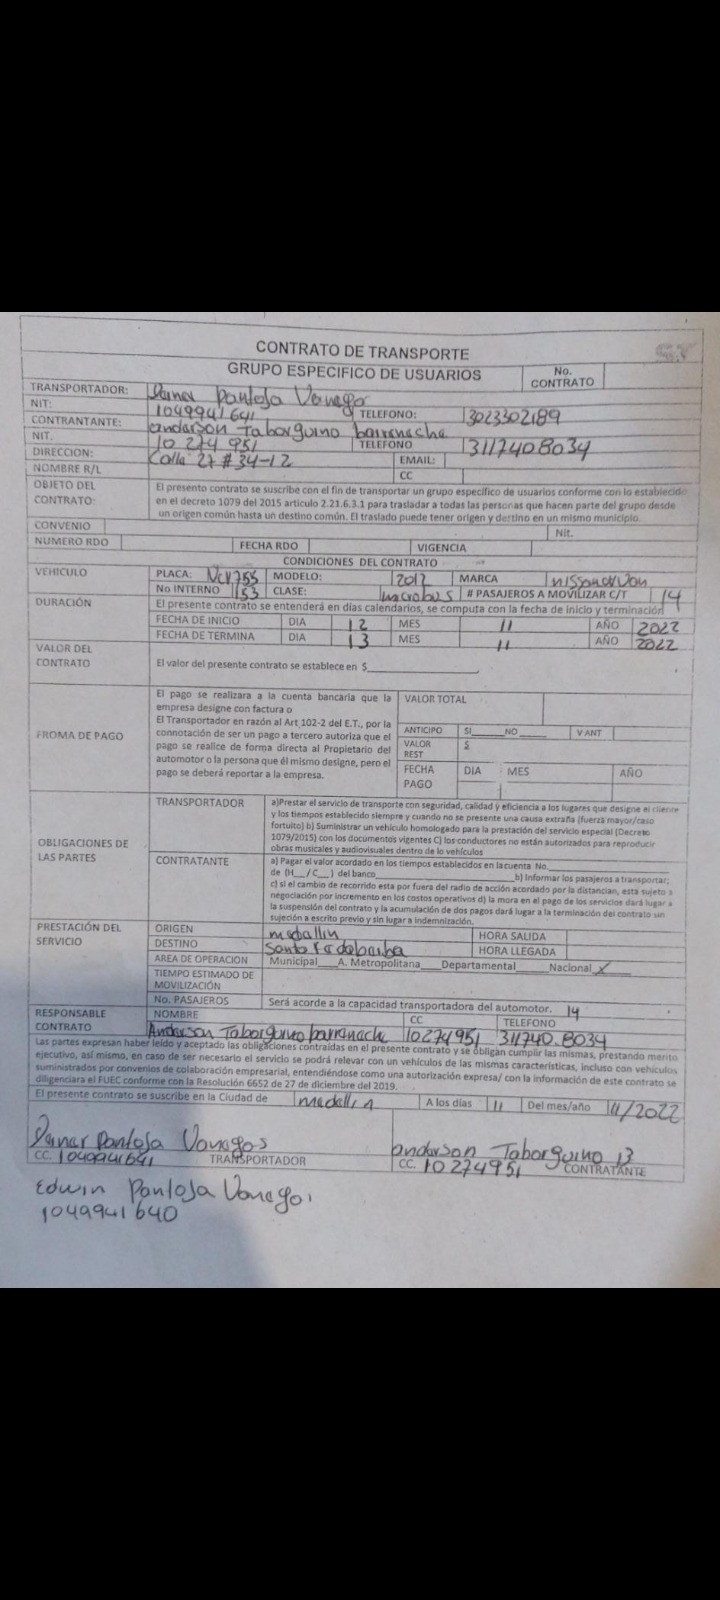 CONTRATO DE TRANSPORTE
GRUPO ESPECIFICO DE USUARIOS No. CONTRATO
TRANSPORTADOR: Deiner Pantoja Vanega
NIT: 1049941641 TELEFONO: 3023302189
CONTRANTANTE: anderson Taborguino barranache
NIT. 10 274 951 TELEFONO 3117408034
DIRECCION: Calla 27 # 34-12 EMAIL:
NOMBRE R/L CC
OBJETO DEL CONTRATO: El presento contrato se suscribe con el fin de transportar un grupo específico de usuarios conforme con lo establecido
en el decreto 1079 del 2015 articulo 2.21.6.3.1 para trasladar a todas las personas que hacen parte del grupo desde
un origen común hasta un destino común. El traslado puede tener origen y destino en un mismo municipio.
CONVENIO Nit.
NUMERO RDO FECHA RDO VIGENCIA
CONDICIONES DEL CONTRATO
VEHICULO PLACA: MODELO: 2012 MARCA
No INTERNO 153 CLASE: microbus # PASAJEROS A MOVILIZAR C/T 14
DURACIÓN El presente contrato se entenderá en días calendarios, se computa con la fecha de inicio y terminación
FECHA DE INICIO DIA 12 MES 11 AÑO 2022
FECHA DE TERMINA DIA 13 MES 11 AÑO 2022
VALOR DEL CONTRATO El valor del presente contrato se establece en $
FROMA DE PAGO El pago se realizara a la cuenta bancaria que la
empresa designe con factura o
El Transportador en razón al Art 102-2 del E.T., por la
connotación de ser un pago a tercero autoriza que el
pago se realice de forma directa al Propietario del
automotor o la persona que él mismo designe, pero el
pago se deberá reportar a la empresa.
VALOR TOTAL
ANTICIPO SI____NO____ V ANT
VALOR REST $
FECHA PAGO DIA MES AÑO
OBLIGACIONES DE LAS PARTES
TRANSPORTADOR a)Prestar el servicio de transporte con seguridad, calidad y eficiencia a los lugares que designe el cliente
y los tiempos establecido siempre y cuando no se presente una causa extraña (fuerza mayor/caso
fortuito) b) Suministrar un vehículo homologado para la prestación del servicio especial (Decreto
1079/2015) con los documentos vigentes C) los conductores no están autorizados para reproducir
obras musicales y audiovisuales dentro de lo vehículos
CONTRATANTE a) Pagar el valor acordado en los tiempos establecidos en la cuenta No.
de (H__/ C__) del banco____ b) Informar los pasajeros a transportar;
c) si el cambio de recorrido esta por fuera del radio de acción acordado por la distancian, esta sujeto a
negociación por incremento en los costos operativos d) la mora en el pago de los servicios dará lugar a
la suspensión del contrato y la acumulación de dos pagos dará lugar a la terminación del contrato sin
sujeción a escrito previo y sin lugar a indemnización.
PRESTACIÓN DEL SERVICIO ORIGEN medallin HORA SALIDA
DESTINO HORA LLEGADA
AREA DE OPERACIÓN Municipal____A. Metropolitana____Departamental____Nacional X
TIEMPO ESTIMADO DE MOVILIZACIÓN
No. PASAJEROS Será acorde a la capacidad transportadora del automotor. 14
RESPONSABLE CONTRATO NOMBRE CC TELEFONO
Anderson Taborguino barranache 10274951 311740.8034
Las partes expresan haber leído y aceptado las obligaciones contraídas en el presente contrato y se obligan cumplir las mismas, prestando merito
ejecutivo, así mismo, en caso de ser necesario el servicio se podrá relevar con un vehículos de las mismas características, incluso con vehículos
suministrados por convenios de colaboración empresarial, entendiéndose como una autorización expresa/ con la información de este contrato se
diligenciara el FUEC conforme con la Resolución 6652 de 27 de diciembre del 2019.
El presente contrato se suscribe en la Ciudad de medellin A los días 11 Del mes/año 11/2022
Deiner Pantoja Vanegas anderson Taborguino B
CC. 1049941641 TRANSPORTADOR CC. 10274951 CONTRATANTE
Edwin Pantoja Vanega.
1049941640